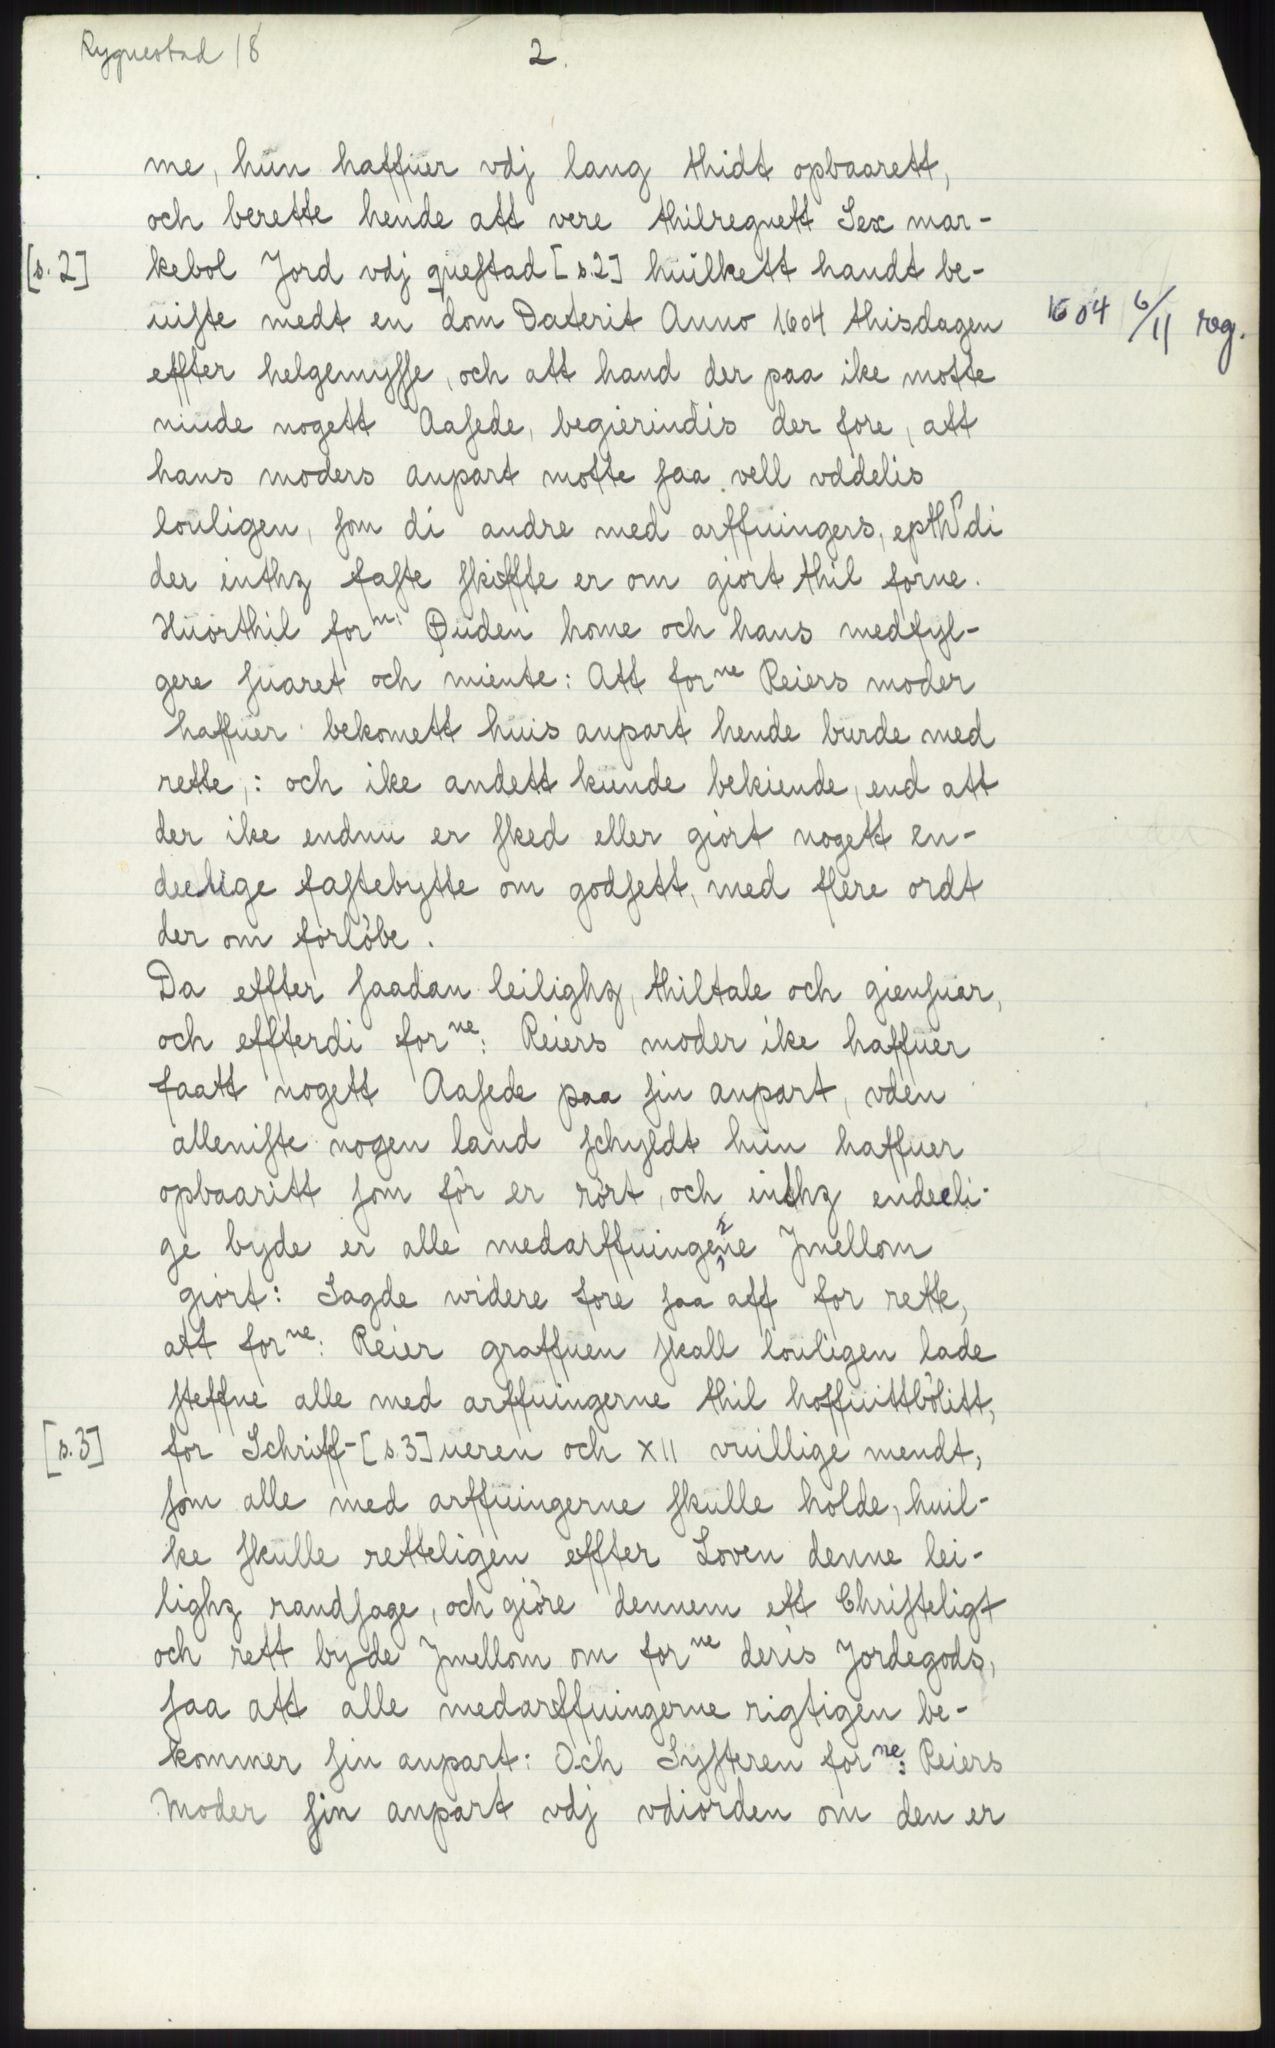 Rygnestad 18
2.
me, hun haffuer vdj lang thidt opbaarett,
och berette hende att vere thilregnett Sex mar-
[s.2] kebol Jord vdj questad [s.2] huilkett handt be-
uiste medt en dom Daterit Anno 1604 thisdagen
1604 6/11 reg.
effter helgemysse, och att hand der paa ike motte
niude nogett Aasede, begierindis der fore, att
hans moders anpart motte saa vell vddelis
louligen, som di andre med arffuingers, epth di
der inthz faste skiffte er om giort thil forne.
Huorthil forne: Øuden home och hans medfyl-
gere suaret och miente: Att forne Reiers moder
haffuer bekomett huis anpart hende burde med
rette,: och ike andett kunde bekiende, end att
der ike endnu er sked eller giort nogett en-
deelige fastebytte om godsett, med flere ordt
der om forlòbe.
Da effter saadan leilighz, thiltale och giensuar,
och effterdi forne: Reiers moder ike haffuer
faatt nogett Aasede paa sin anpart, vden
alleniste nogen land schyldt hun haffuer
opbaaritt som fòr er rórt, och inthz endeeli-
ge byde er alle medarffuingerne Jmellom
giort: Sagde widere fore saa aff for rette,
att forne: Reier graffuen skall louligen lade
steffne alle med arffuingerne thil hoffuittbólitt,
[s.3] for Schriff-[s.3]ueren och XII vuillige mendt,
som alle med arffuingerne skulle holde, huil-
ke skulle retteligen effter Loven denne lei-
lighz randsage, och giòre dennem ett Christeligt
och rett byde Jmellom om forne deris Jordegods,
saa att alle medarffuingerne rigtigen be-
kommer sin anpart: Och Systeren forne: Reiers
Moder sin anpart vdj vdiorden om den er